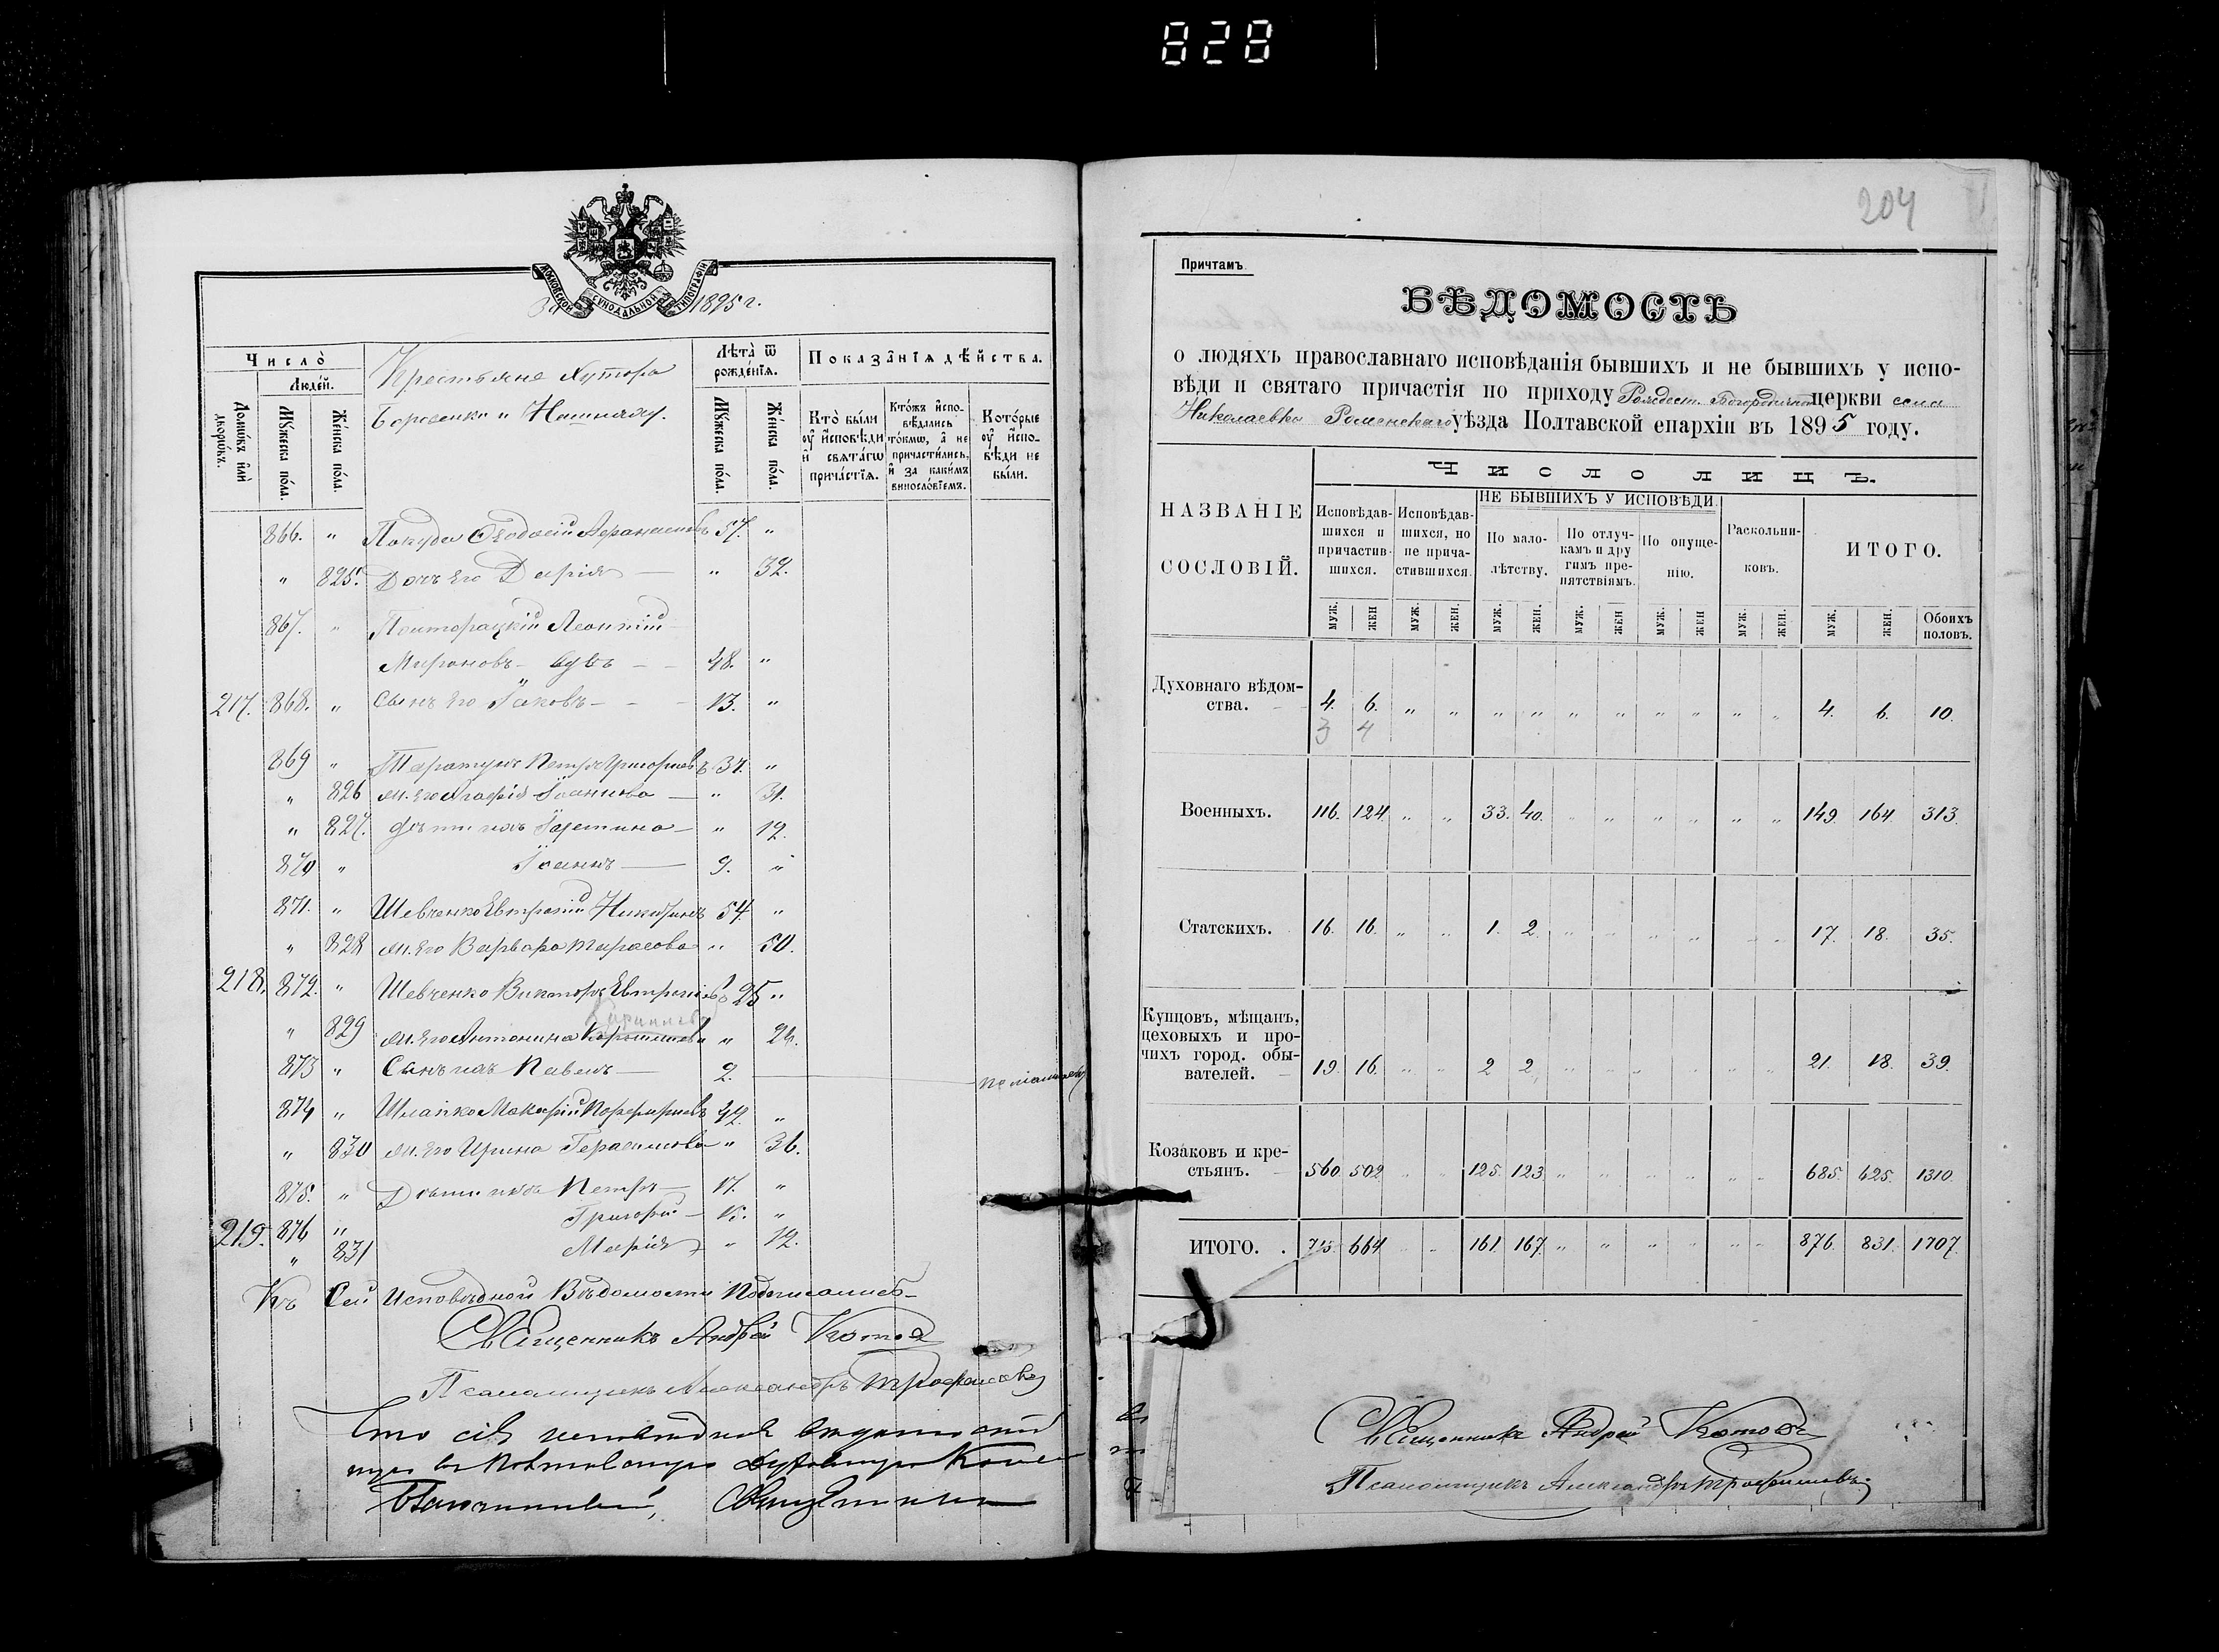 828
МОСКОВСКОЙ СѴНОДАЛЬНОЙ ТИПОГРАФІИ
За 1895 г.
Число̀
Людей.
Домѡвъ или дворѡвъ.
Мꙋжеска пола.
Женска пола.
Крестьяне Хутора
Лѣта̀ ѿ рожденїѧ.
Мꙋжеска пола.
Женска пола.
Показанїѧ дѣйства.
Кто̀ были оу исповѣди и свѧтагѡ причастїѧ.
Ктожъ исповѣдались токмѡ, а не причастились, и за какимъ винословїемъ.
Которые оу исповѣди не были.
866. " Ѳеодосій 57. "
" 825. Дочь его Дарія — " 32.
867. " Леонтій
Мироновъ - вдвъ - - 48. "
217. 868. " Сынъ его Іаковъ - - - 13. "
869 " Петръ Григорьевъ 37. "
" 826 ж. его Агафія Іоаннова — " 31.
" 827. Дѣти ихъ Іустина — " 12.
870 " Іоаннъ — 9. "
871. " Шевченко Евтропій Никитинъ 54. "
" 828 ж. его Варвара Тарасова " 50.
218. 872. " Шевченко Викторъ Евтропіевъ 25 "
" 829 ж. его Антонина " 24.
873 " Сынъ ихъ Павелъ — 2. —
874 " Шлапко Макарій Порфирьевъ 42. "
" 830 ж. его Ирина Герасимова " 36.
875. " Дѣти ихъ Петръ — 17. "
219. 876 " Григорій — 15. "
" 831 Марія " 12.
Къ Сей Исповѣдной Вѣдомости Подписались
Священникъ Андрей Котовъ
Псаломщикъ Александръ Трофимовъ
Благочинный, Священникъ
204
Причтамъ.
ВѢДОМОСТЬ
о людяхъ православнаго исповѣданія бывшихъ и не бывшихъ у испо-
вѣди и святаго причастія по приходу Рождест. Богородичной церкви села
Николаевки Роменскаго уѣзда Полтавской епархіи въ 1895 году.
НАЗВАНІЕ СОСЛОВІЙ.
ЧИСЛО ЛИЦЪ.
Исповѣдавшихся и причастившихся.
Исповѣдавшихся, но не причастившихся.
НЕ БЫВШИХЪ У ИСПОВѢДИ.
По малолѣтству.
По отлучкамъ и другимъ препятствіямъ.
По опущенію.
Раскольниковъ.
ИТОГО.
МУЖ. ЖЕН МУЖ. ЖЕН. МУЖ. ЖЕН. МУЖ. ЖЕН МУЖ. ЖЕН МУЖ. ЖЕН. МУЖ. ЖЕН. Обоихъ половъ.
Духовнаго вѣдом-
ства. 4. 6. " " " " " " " " " " 4. 6. 10.
3 4
Военныхъ. 116. 124. " " 33. 40. " " " " " " 149. 164. 313.
Статскихъ. 16. 16. " " 1. 2. " " " " " " 17. 18. 35.
Купцовъ, мѣщанъ,
цеховыхъ и про-
чихъ город. обы-
вателей. 19. 16. " " 2 2 " " " " " " 21. 18. 39.
Козаковъ и кре-
стьянъ. 560. 502 " " 125. 123. " " " " " " 685. 625. 1310.
ИТОГО. . 715. 664 " " 161. 167. " " " " " " 876. 831. 1707.
Священникъ Андрей Котовъ
Псаломщикъ Александръ Трофимовъ.